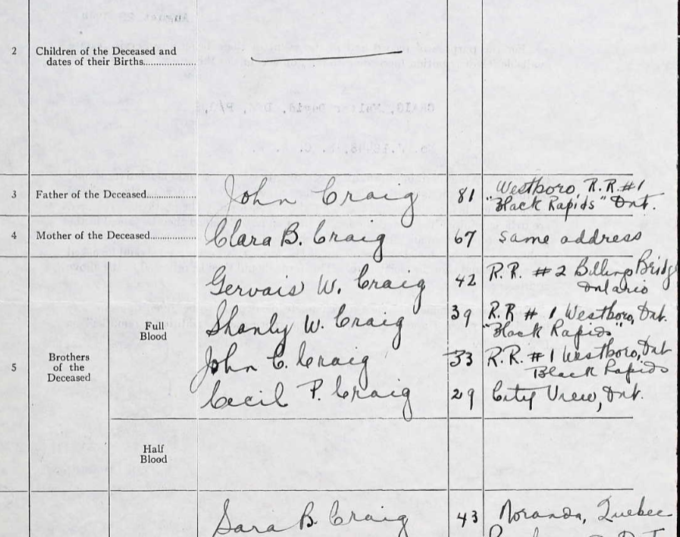 2 Children of the Deceased and
dates of their Births..................
3 Father of the Deceased.................. John Craig 81 Westboro R.R.#1
"Black Rapids" Ont.
4 Mother of the Deceased.................. Clara B. Craig 67 same address
5 Brothers of the Deceased
Full Blood
Gervais W. Craig 42 R.R. #2 Billings Bridg
Ontario
Shanly W. Craig 39 R.R # 1 Westboro, Ont.
"Black Rapids"
John C. Craig 33 R.R. #1 Westboro, Ont
Black Rapids
Cecil P. Craig 29 City View, Ont.
Half Blood
Sara B. Craig 43 Noranda, Quebec